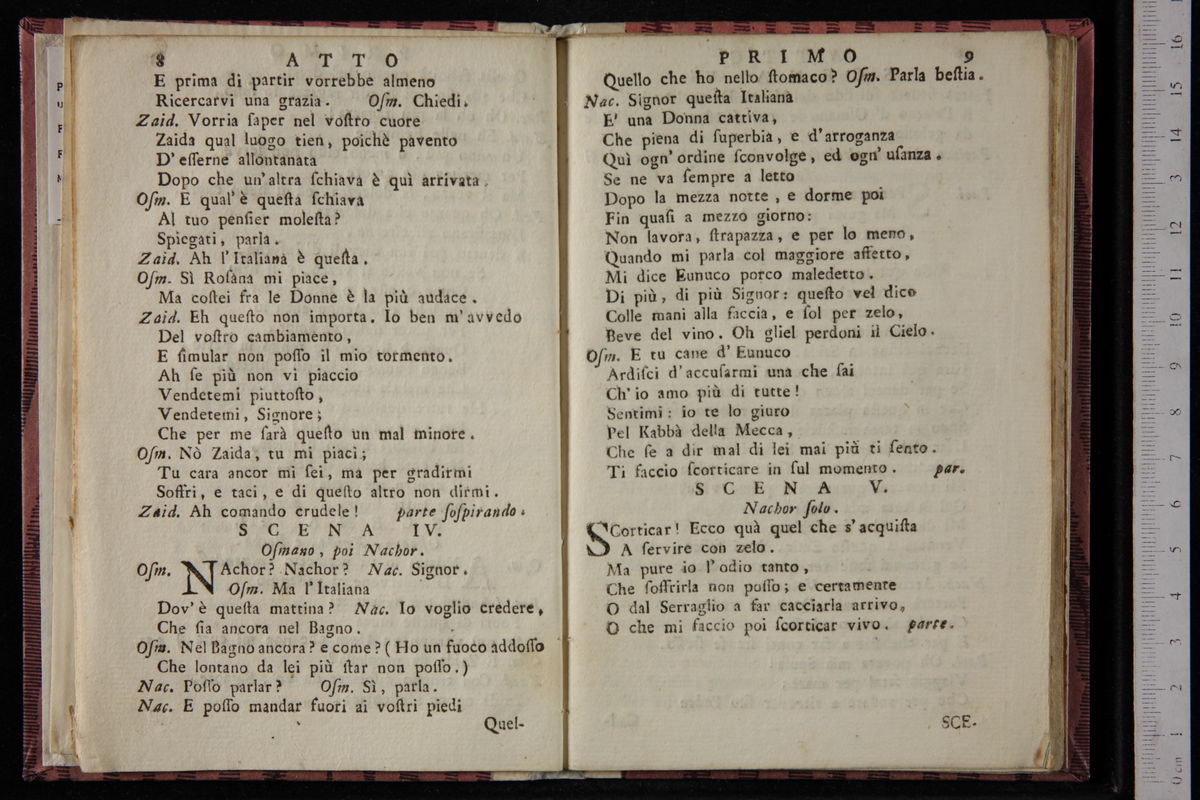 8 ATTO
E prima di partir vorrebbe almeno
Ricercarvi una grazia. Oſm. Chiedi.
Zaid. Vorria ſaper nel voſtro cuore
Zaida qual luogo tien, poichè pavento
D' eſſerne allontanata
Dopo che un' altra ſchiava è quì arrivata.
Oſm. E qual' è queſta ſchiava
Al tuo penſier moleſta?
Spiegati, parla.
Zaid. Ah l' Italiana è queſta.
Oſm. Sì Roſana mi piace,
Ma coſtei fra le Donne è la più audace.
Zaid. Eh queſto non importa. Io ben m' avvedo
Del voſtro cambiamento,
E ſimular non poſſo il mio tormento.
Ah ſe più non vi piaccio
Vendetemi piuttoſto,
Vendetemi, Signore;
Che per me ſarà queſto un mal minore.
Oſm. Nò Zaida, tu mi piaci;
Tu cara ancor mi ſei, ma per gradirmi
Soffri, e taci, e di queſto altro non dirmi.
Zaid. Ah comando crudele! parte ſoſpirando.
SCENA IV.
Oſmano, poi Nachor.
Oſm. NAchor? Nachor? Nac. Signor.
Oſm. Ma l' Italiana
Dov' è queſta mattina? Nac. Io voglio credere,
Che ſia ancora nel Bagno.
Oſm. Nel Bagno ancora? e come? (Ho un fuoco addoſſo
Che lontano da lei più ſtar non poſſo.)
Nac. Poſſo parlar? Oſm. Sì, parla.
Nac. E poſſo mandar fuori ai voſtri piedi
Quel-
PRIMO 9
Quello che ho nello ſtomaco? Oſm. Parla beſtia.
Nac. Signor queſta Italiana
E' una Donna cattiva,
Che piena di ſuperbia, e d' arroganza
Quì ogn' ordine ſconvolge, ed ogn' uſanza.
Se ne va ſempre a letto
Dopo la mezza notte, e dorme poi
Fin quaſi a mezzo giorno:
Non lavora, ſtrapazza, e per lo meno,
Quando mi parla col maggiore affetto,
Mi dice Eunuco porco maledetto.
Di più, di più Signor: queſto vel dico
Colle mani alla faccia, e ſol per zelo,
Beve del vino. Oh gliel perdoni il Cielo.
Oſm. E tu cane d' Eunuco
Ardiſci d' accuſarmi una che ſai
Ch' io amo più di tutte!
Sentimi: io te lo giuro
Pel Kabbà della Mecca,
Che ſe a dir mal di lei mai più ti ſento.
Ti faccio ſcorticare in ſul momento. par.
SCENA V.
Nachor ſolo.
SCorticar! Ecco quà quel che s' acquiſta
A ſervire con zelo.
Ma pure io l' odio tanto,
Che ſoffrirla non poſſo; e certamente
O dal Serraglio a far cacciarla arrivo,
O che mi faccio poi ſcorticar vivo. parte.
SCE-
0 cm 1 2 3 4 5 6 7 8 9 10 11 12 13 14 15 16